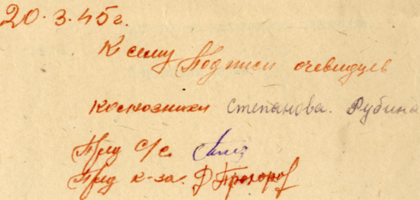 20.3.45г.
К сему Подписи очевидцев
колхозники Степанова. Рубина
Пред с/с
Пред к-за. Прохоров